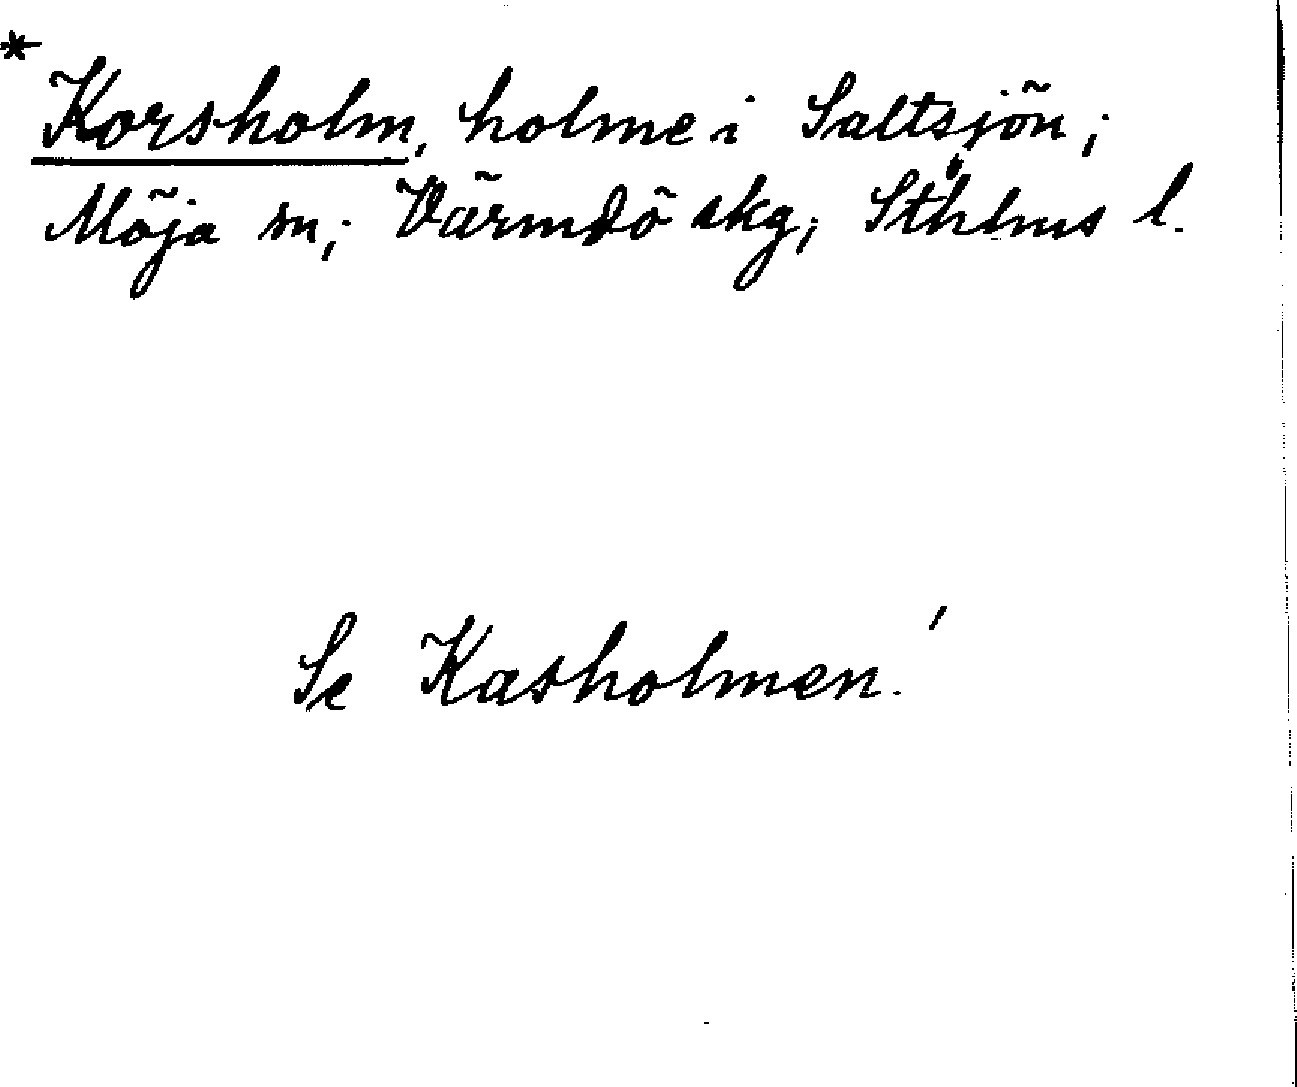 *
Korsholm, holme i Saltsjön;
Möja sn; Värmdö skg; Sthlms l.
Se Kasholmen.